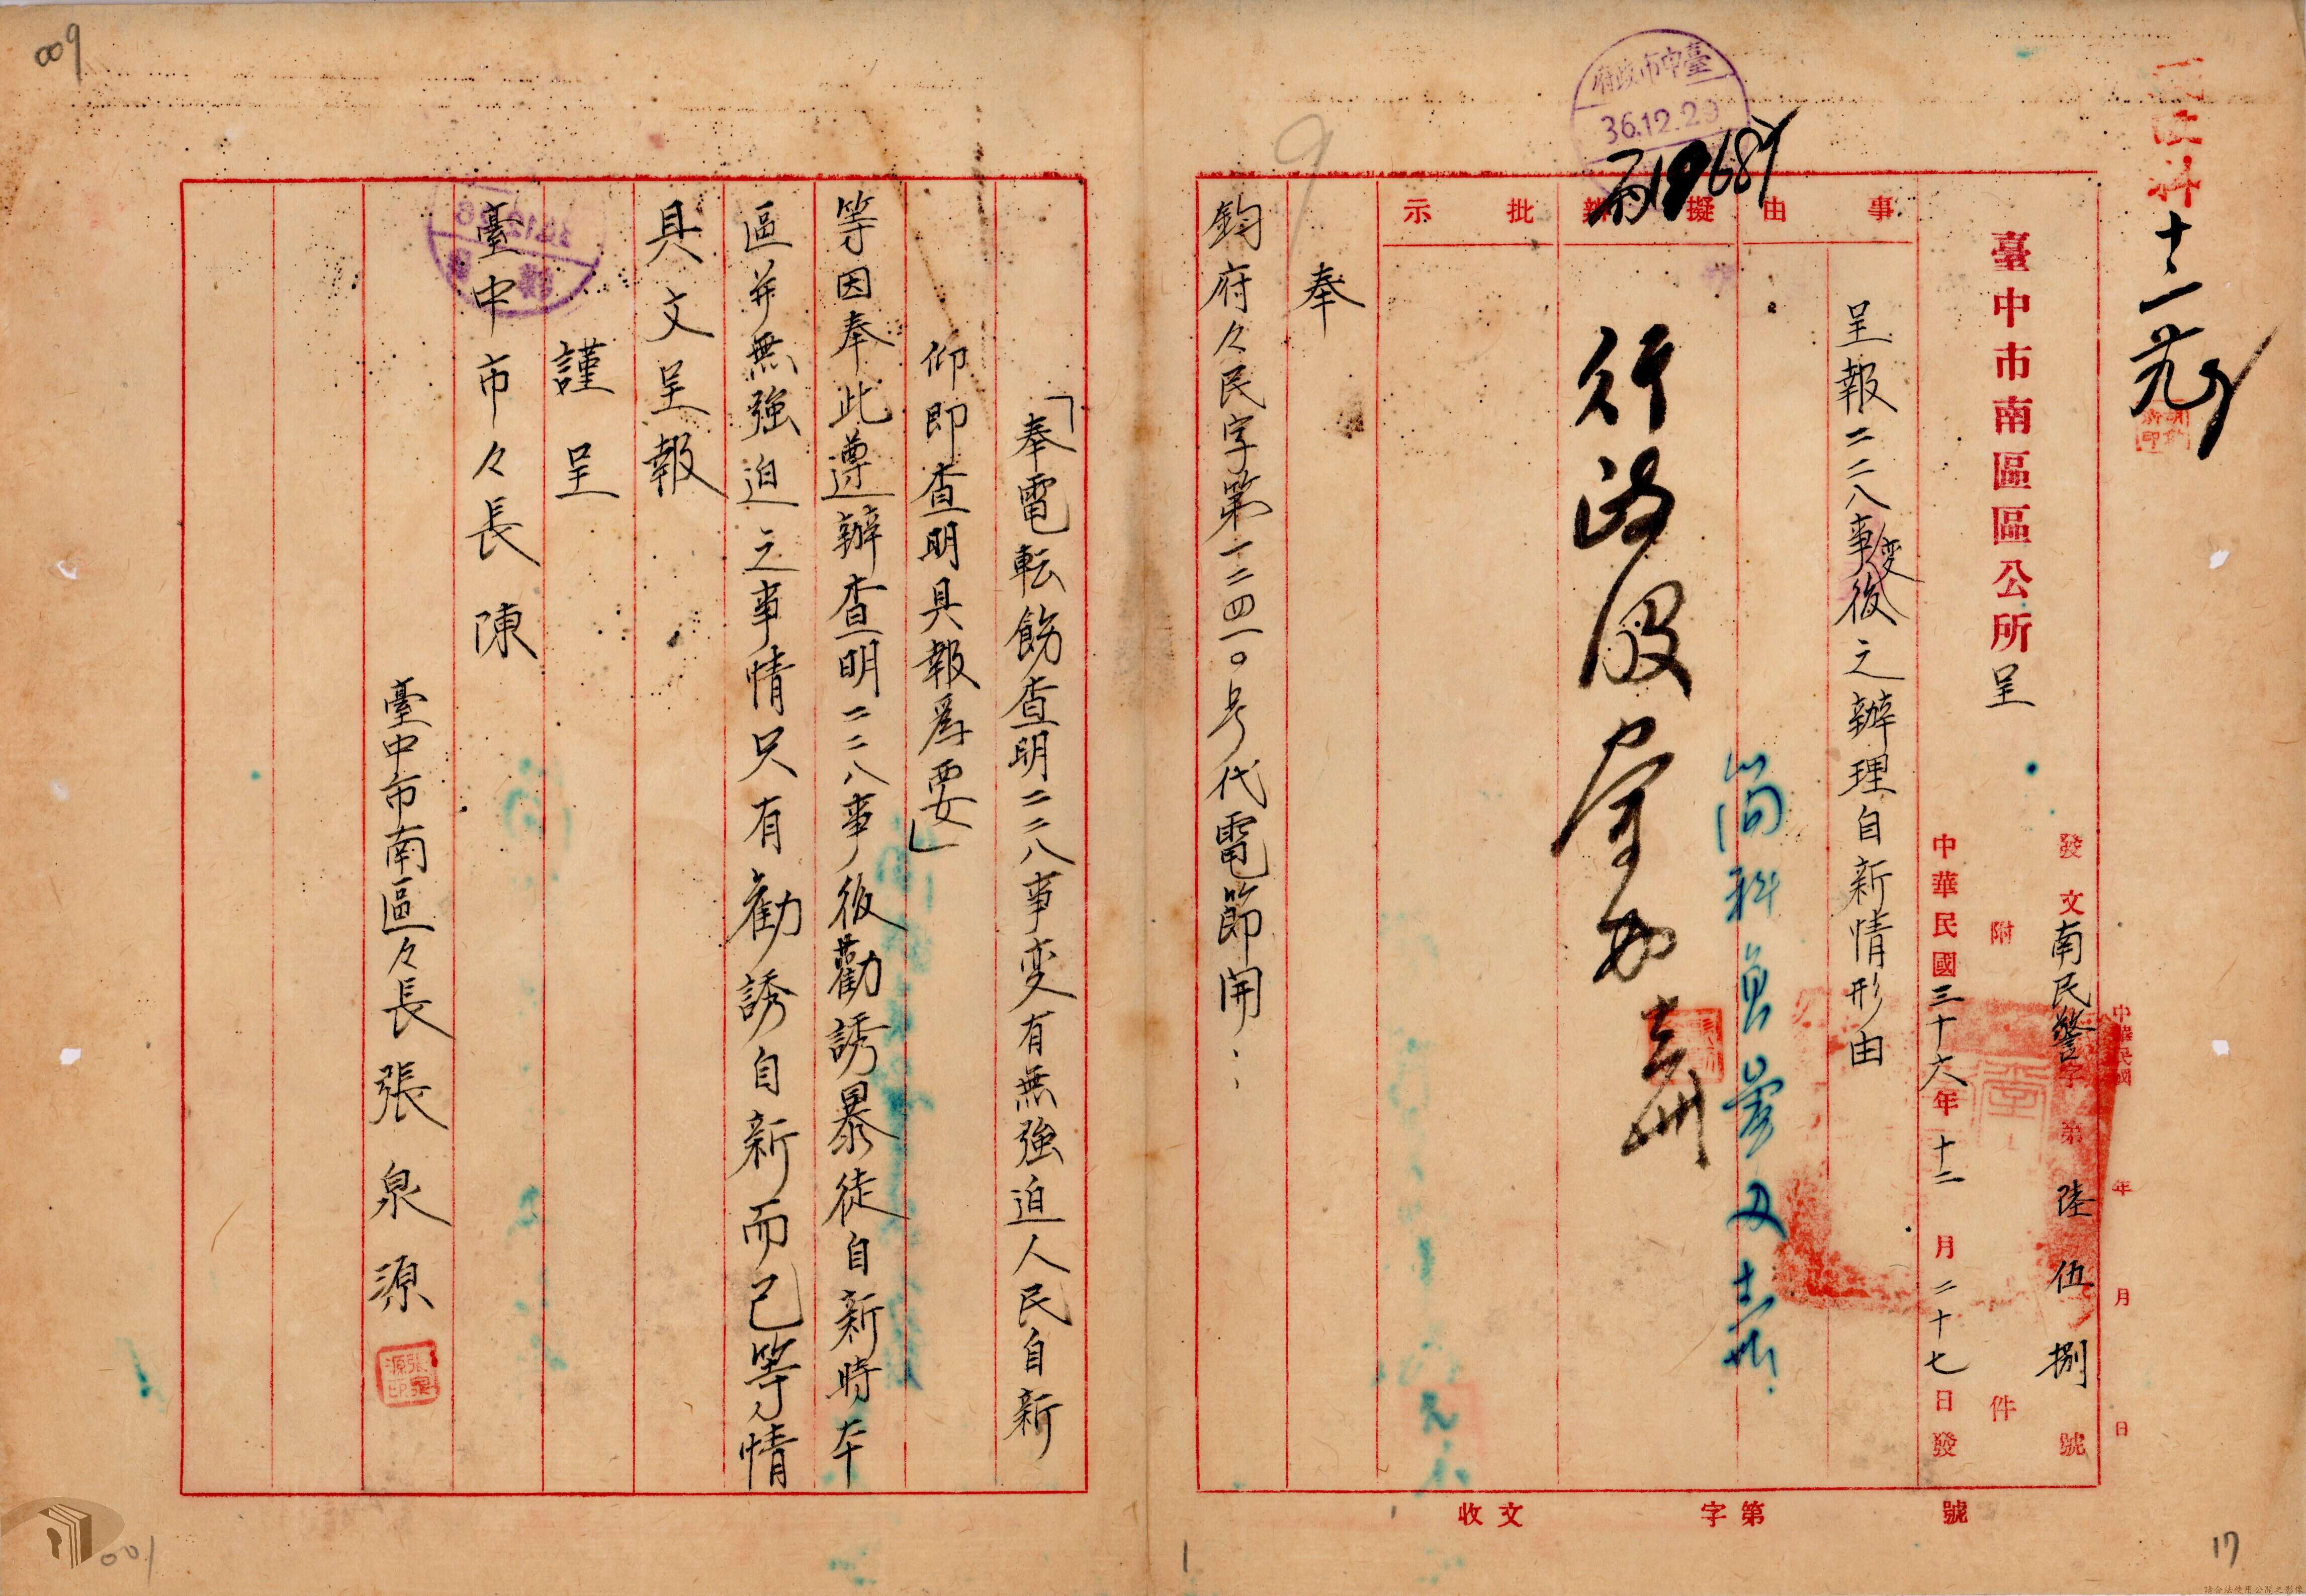 民政科
十二、一
臺中市南區區公所呈
發文南民警字第陸伍捌號
附件
中華民國三十六年十二月二十七日發
中華民國 年 月 日
臺中市政府
36.12.29
19689
事由
擬辦
批示
呈報二二八事变後之辦理自新情形由
行政股
奉
鈞府々民字第一二四一〇号代電節開：
「奉電転飭查明二二八事变有無強迫人民自新
仰即查明具報為要」
等因奉此遵辦查明二二八事後勸誘暴徒自新時本
區并無強迫之事情只有勸誘自新而已等情
具文呈報
謹呈
臺中市々長陳
臺中市南區々長張泉源
張泉源印
收文 字第 號
009
9
001
1
17
請合法使用公開之影像